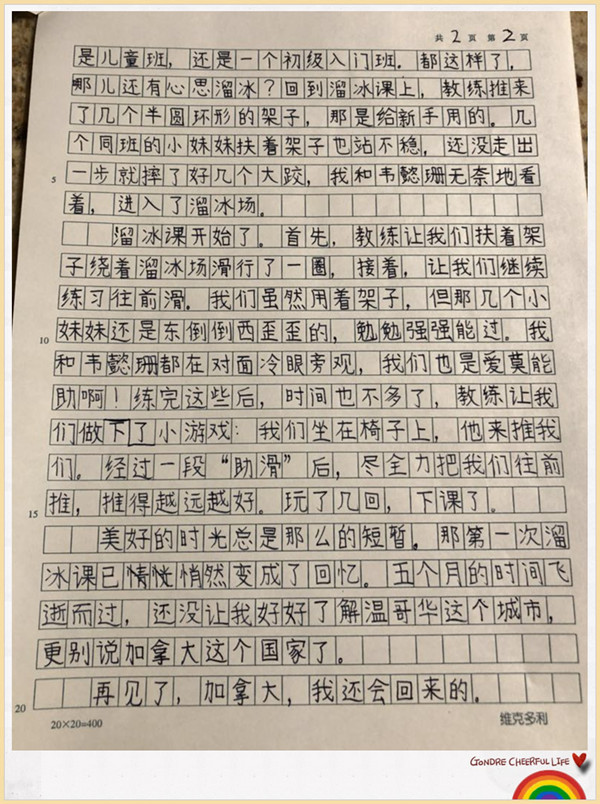 共2页 第2页
是儿童班，还是一个初级入门班。都这样了，
哪儿还有心思溜冰？回到溜冰课上，教练推来
了几个半圆环形的架子，那是给新手用的。几
个同班的小妹妹扶着架子也站不稳，还没走出
5 一步就摔了好几个大跤，我和韦懿珊无奈地看
着，进入了溜冰场。
溜冰课开始了。首先，教练让我们扶着架
子绕着溜冰场滑行了一圈，接着，让我们继续
练习往前滑。我们虽然用着架子，但那几个小
10 妹妹还是东倒倒西歪歪的，勉勉强强能过。我
和韦懿珊都在对面冷眼旁观，我们也是爱莫能
助啊！练完这些后，时间也不多了，教练让我
们做下了小游戏：我们坐在椅子上，他来推我
们。经过一段“助滑”后，尽全力把我们往前
15 推，推得越远越好。玩了几回，下课了。
美好的时光总是那么的短暂。那第一次溜
冰课已情恍悄然变成了回忆。五个月的时间飞
逝而过，还没让我好好了解温哥华这个城市，
更别说加拿大这个国家了。
20 再见了，加拿大，我还会回来的。
20×20=400 维克多利
GONDRE CHEERFUL LIFE